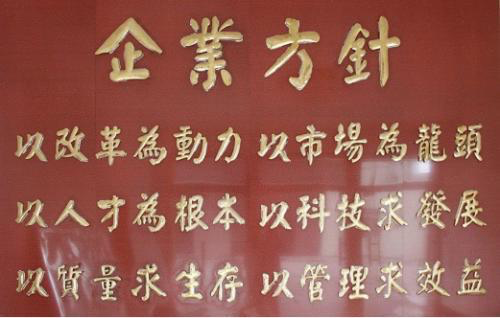 企業方針
以改革為動力 以市場為龍頭
以人才為根本 以科技求發展
以質量求生存 以管理求效益